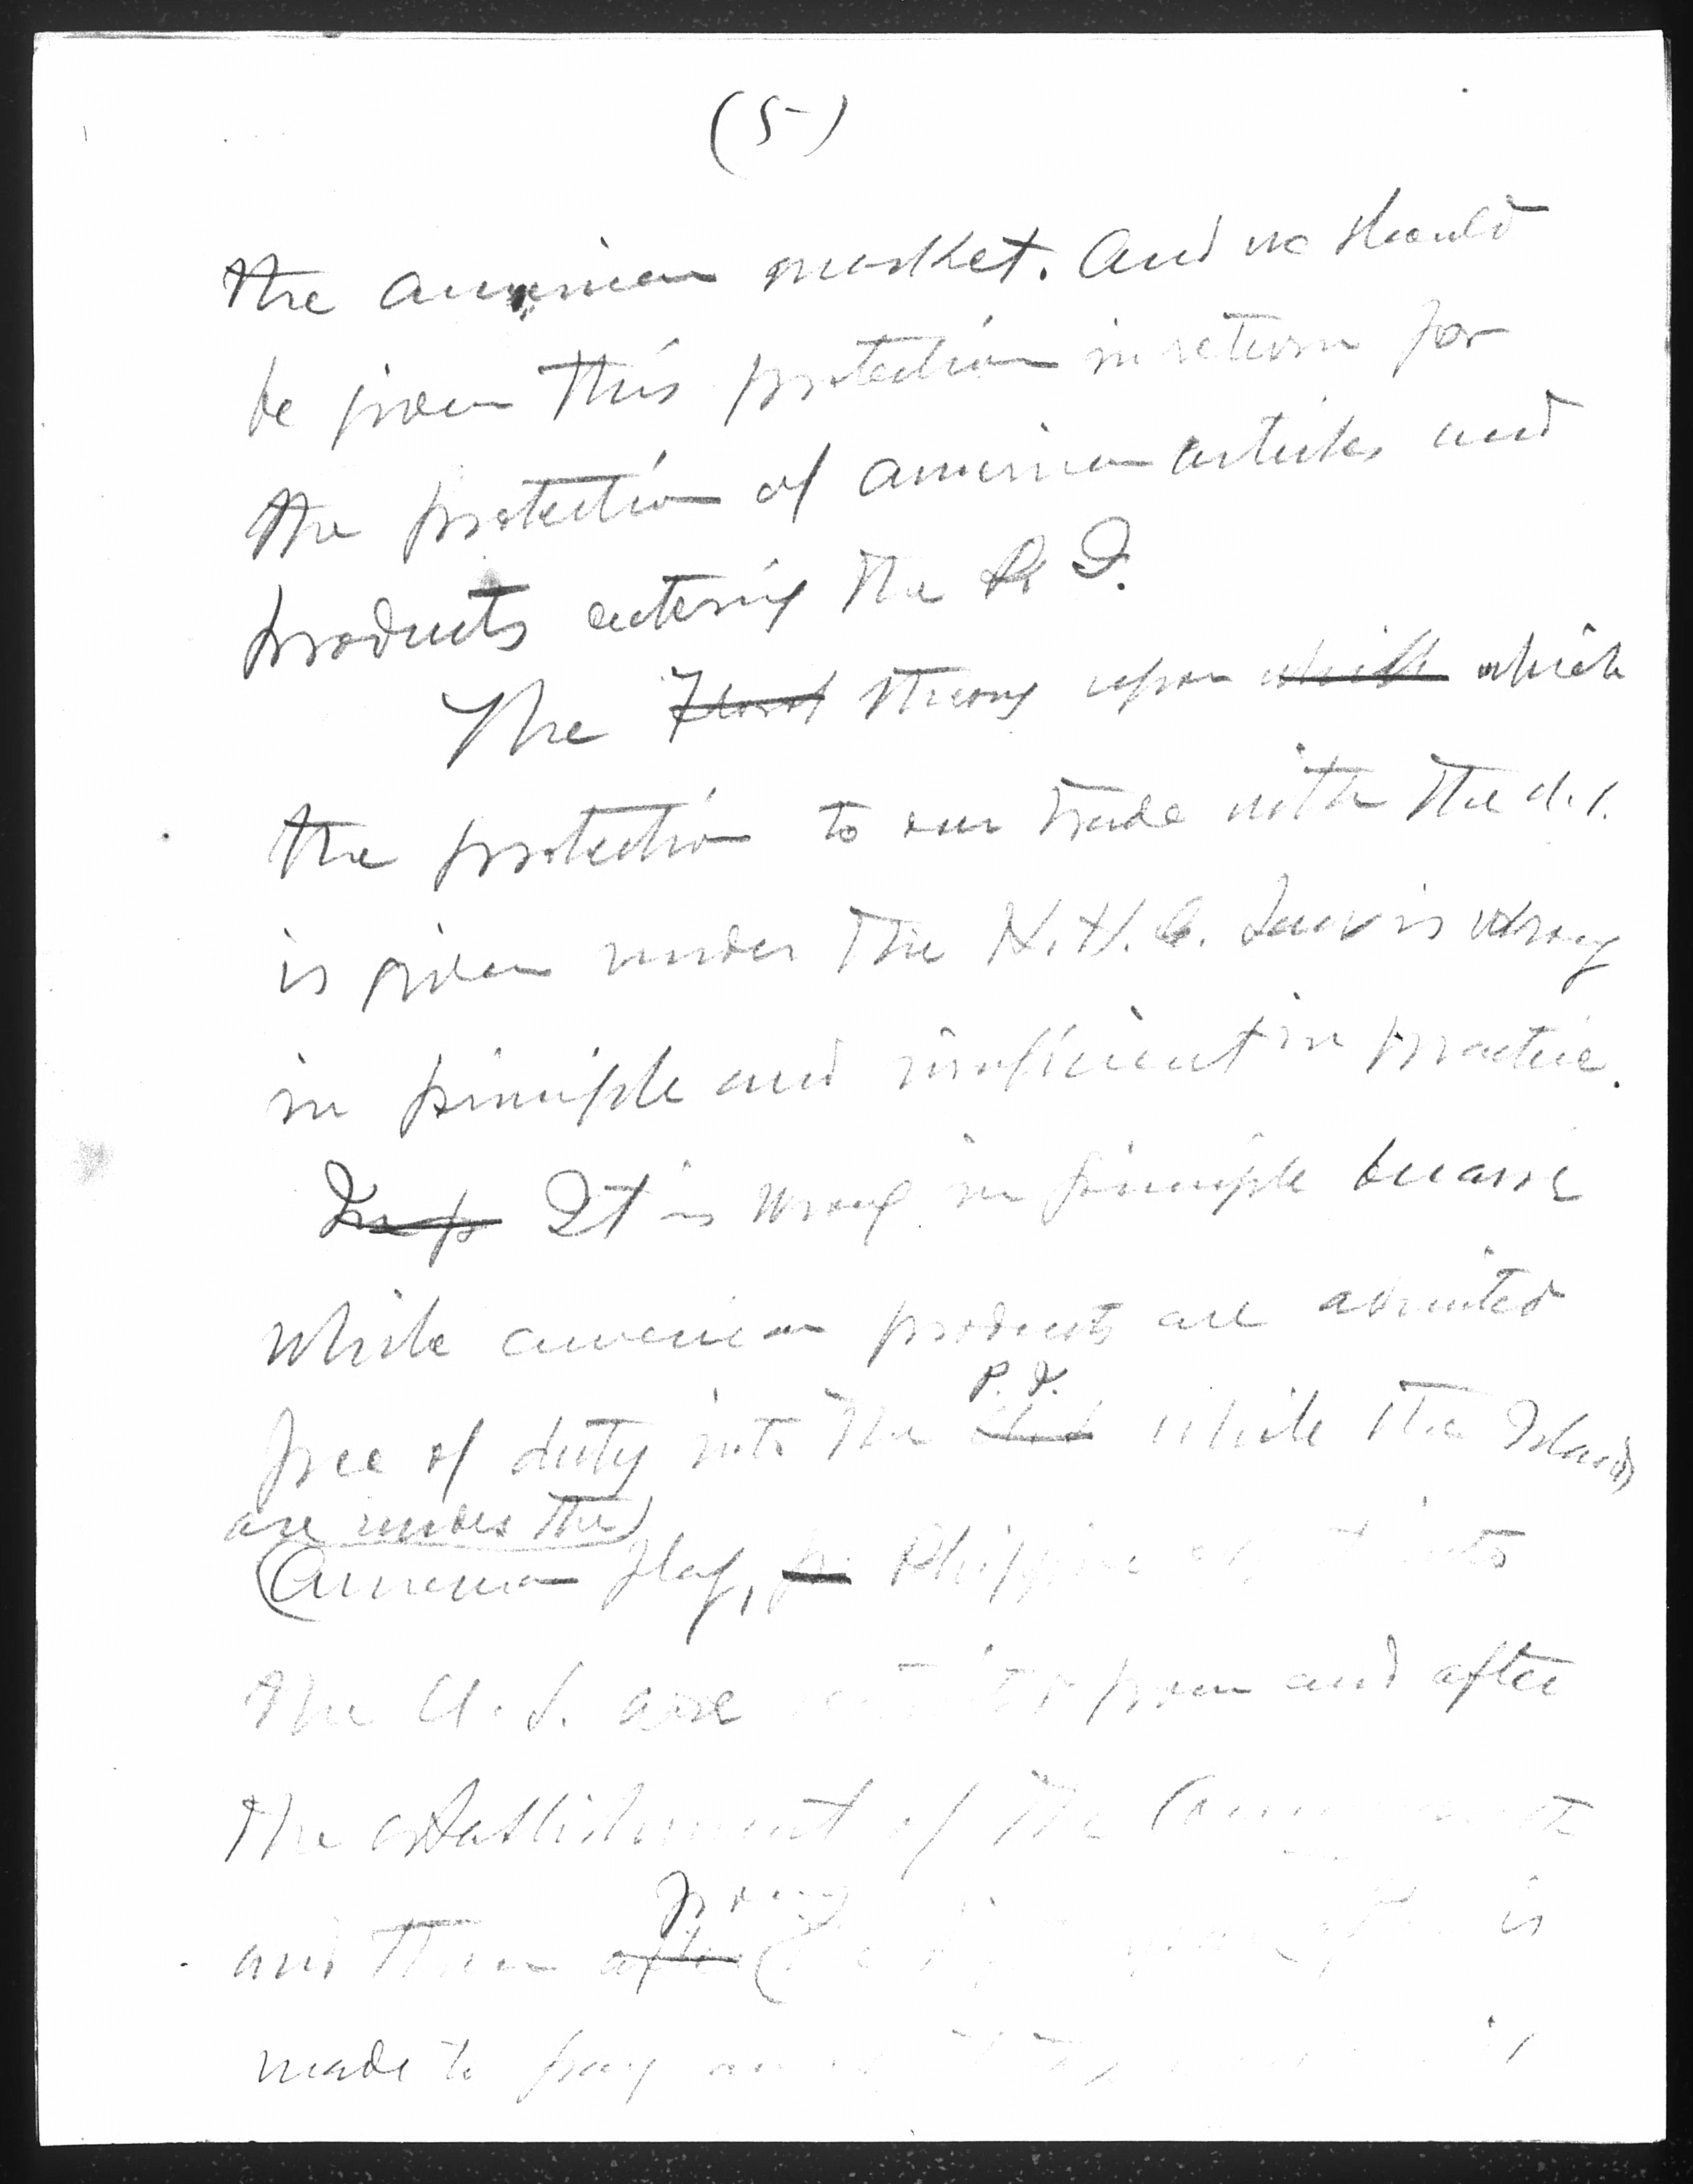 (5)
the American market. And we should
be given this protection in return for
the protection of American articles and
products entering the P. I.
The theory upon which which
the protection to our trade with the U.S.
is given under the H.H.C. Law is wrong
in principle and insufficient in practice.
It is wrong in principle because
While American products are admited
P. I.
free of duty into the while the Islands
are under the
American flag, Philippine
the U.S. are from and after
the establishment of the
from
and then after is
made to pay